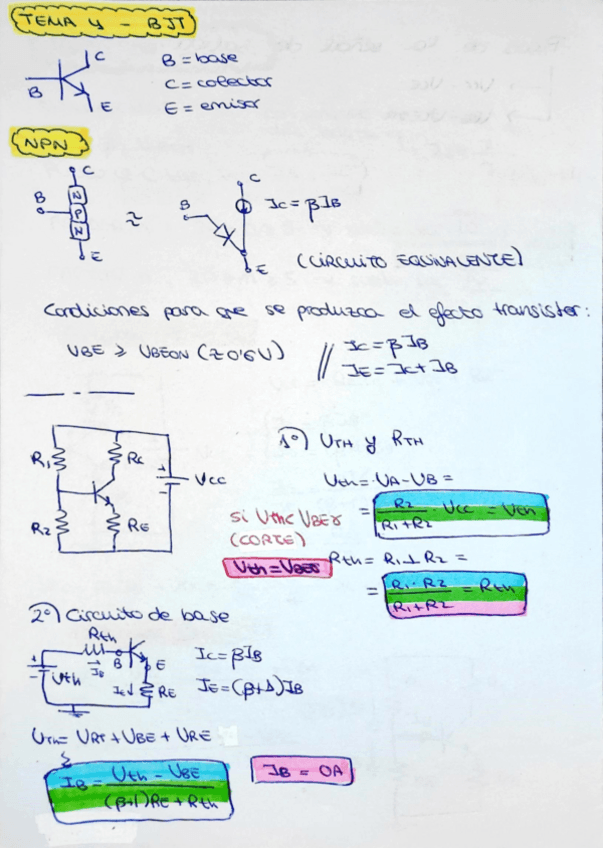 TEMA 4 - BJT
C
B
E
B = base
C = colector
E = emisor
NPN
C
B
N
P
N
E
≈
C
B
E
Ic = βIB
(CIRCUITO EQUIVALENTE)
Condiciones para que se produzca el efecto transistor:
VBE ≥ VBEON (≈0'6V) // Ic = βIB
IE = Ic + IB
R1
Rc
R2
RE
+
-
Vcc
1º) VTH y RTH
Vth = VA - VB =
= R2 / R1+R2 · Vcc = Vth
si Vth < VBEγ
(CORTE)
Vth = VBEγ
Rth = R1 ⊥ R2 =
= R1 · R2 / R1+R2 = Rth
2º) Circuito de base
Rth
+
-
Vth
IB
B
E
IE
RE
Ic = βIB
IE = (β+1)IB
VTh = VRT + VBE + VRE
IB = Vth - VBE / (β+1)RE + Rth
IB = 0A